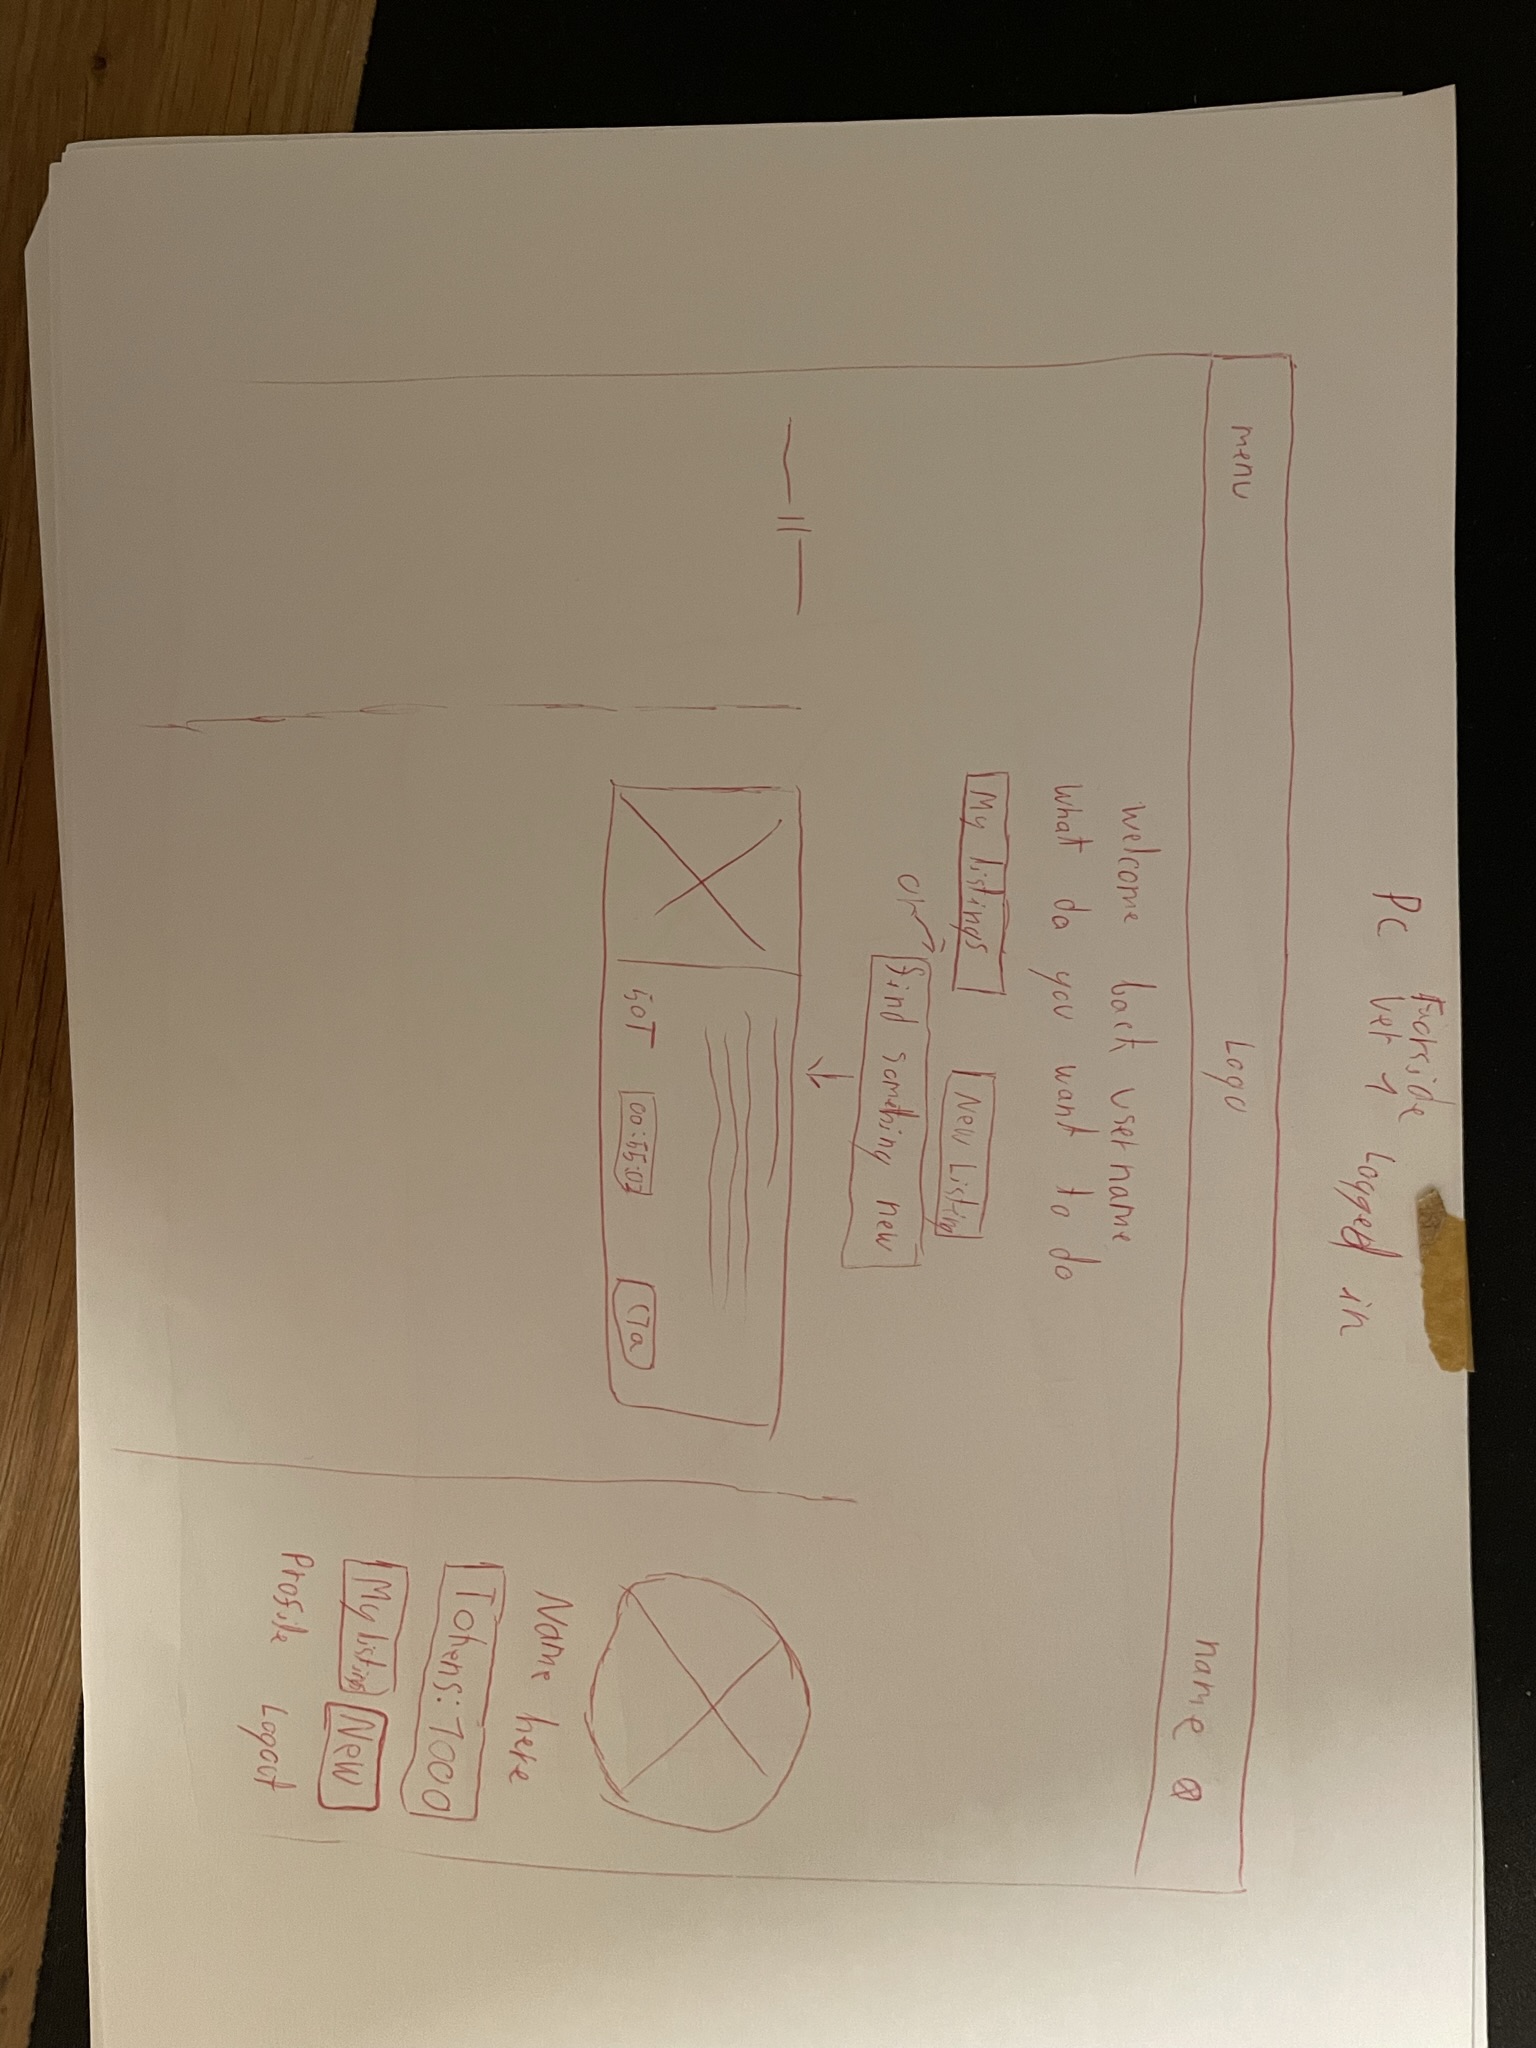 Forside
PC Ver 1 Logged in
menu Logo name
welcome back username
what do you want to do
My listings New Listing
or find something new
50T 00:55:03 CTa
Name here
Tokens: 1000
My listings New
Profile Logout